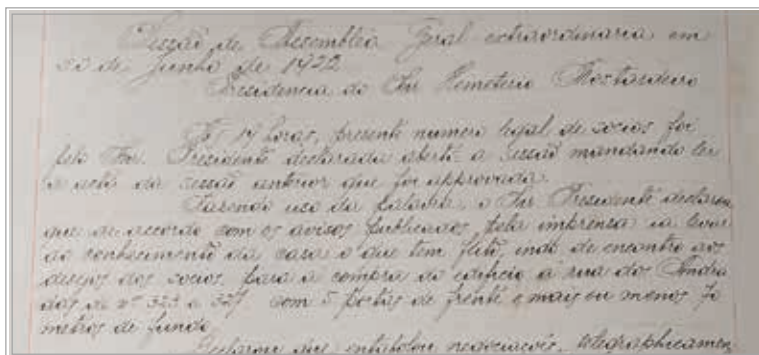 Sessaõ de Assembléa Geral extraordinaria em
de Junho de 1922
Presidencia do Snr Hemeterio Mostardeiro
horas, presente numero legal de socios foi
pelo Snr. Presidente declarada aberta a sessaõ mandando ler
a acta da sessaõ anterior que foi approvada.
Fazendo uso da palavra, o Snr Presidente declarou
que de accordo com os avisos publicados pela imprensa ia levar
ao conhecimento da casa o que tem feito, indo de encontro aos
desejos dos socios, para a compra do edificio á rua dos Andra
das nº 323 e 327 com 5 portas de frente e mais ou menos
metros de fundo.
Declarou que entabolou negociações, telegraphicamen